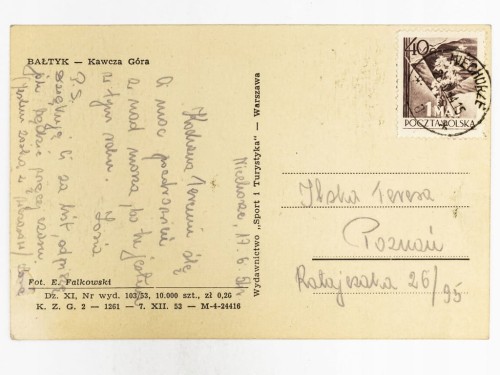 BAŁTYK — Kawcza Góra
Niechorze, 17.6.54
Kochana Tereniu ślę
Ci moc pozdrowień
z nad morza, bo tu jestem
w tym roku. Zosia
P.S.
dziękuję Ci za list, odpiszę
jak będzie więcej czasu.
Fot. E. Falkowski
Dz. XI, Nr wyd. 103/53, 10.000 szt., zł 0,26
K. Z. G. 2 — 1261 — 7. XII. 53 — M-4-24416
Wydawnictwo „Sport i Turystyka” — Warszawa
40 GR
1 MAJ
POCZTA POLSKA
NIECHORZE
Ilska Teresa
Poznań
Ratajczaka 26/95